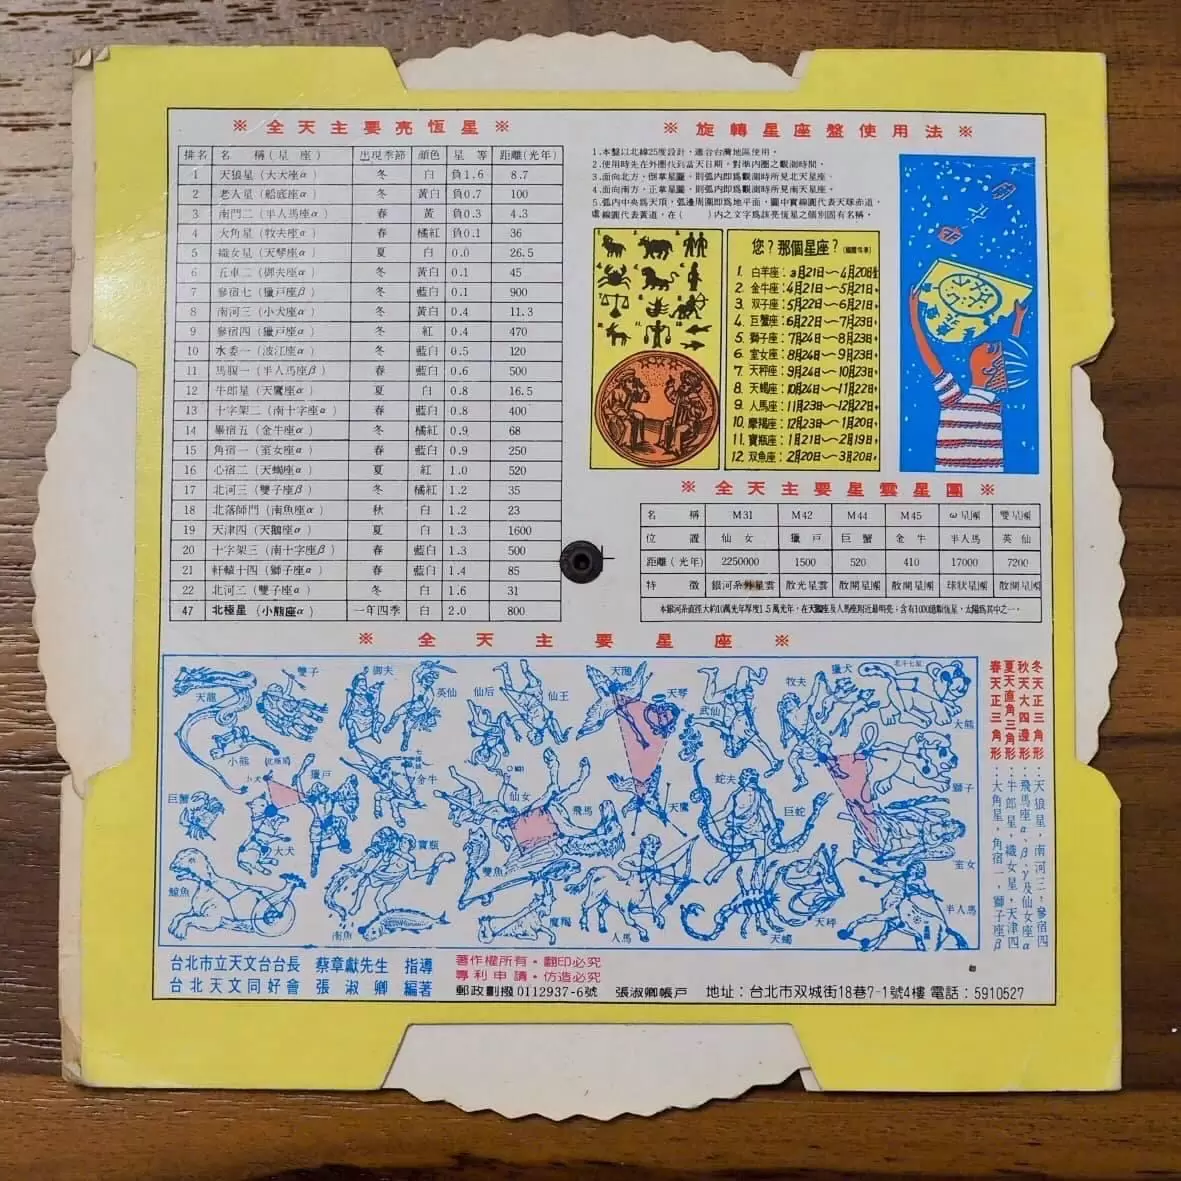 ※ 全天主要亮恆星 ※
排名 名 稱(星 座) 出現季節 顏色 星 等 距離(光年)
1 天狼星(大犬座α) 冬 白 負1.6 8.7
2 老人星(船底座α) 冬 黃白 負0.7 100
3 南門二(半人馬座α) 春 黃 負0.3 4.3
4 大角星(牧夫座α) 春 橘紅 負0.1 36
5 織女星(天琴座α) 夏 白 0.0 26.5
6 五車二(御夫座α) 冬 黃白 0.1 45
7 參宿七(獵戶座β) 冬 藍白 0.1 900
8 南河三(小犬座α) 冬 黃白 0.4 11.3
9 參宿四(獵戶座α) 冬 紅 0.4 470
10 水委一(波江座α) 冬 藍白 0.5 120
11 馬腹一(半人馬座β) 春 藍白 0.6 500
12 牛郎星(天鷹座α) 夏 白 0.8 16.5
13 十字架二(南十字座α) 春 藍白 0.8 400
14 畢宿五(金牛座α) 冬 橘紅 0.9 68
15 角宿一(室女座α) 春 藍白 0.9 250
16 心宿二(天蝎座α) 夏 紅 1.0 520
17 北河三(雙子座β) 冬 橘紅 1.2 35
18 北落師門(南魚座α) 秋 白 1.2 23
19 天津四(天鵝座α) 夏 白 1.3 1600
20 十字架三(南十字座β) 春 藍白 1.3 500
21 軒轅十四(獅子座α) 春 藍白 1.4 85
22 北河三(雙子座α) 冬 白 1.6 31
47 北極星(小熊座α) 一年四季 白 2.0 800
※ 旋轉星座盤使用法 ※
1.本盤以北緯25度設計，適合台灣地區使用。
2.使用時先在外圈找到當天日期，對準內圈之觀測時間。
3.面向北方，倒拿星圖，則弧內即爲觀測時所見北天星座。
4.面向南方，正拿星圖，則弧內即爲觀測時所見南天星座。
5.弧內中央爲天頂，弧邊周圍即爲地平面，圖中實線圓代表天球赤道，
處線圓代表黃道，在( )內之文字爲該亮恆星之個別固有名稱。
您？那個星座？
1. 白羊座：3月21日～4月20日
2. 金牛座：4月21日～5月21日
3. 双子座：5月22日～6月21日
4. 巨蟹座：6月22日～7月23日
5. 獅子座：7月24日～8月23日
6. 室女座：8月24日～9月23日
7. 天秤座：9月24日～10月23日
8. 天蝎座：10月24日～11月22日
9. 人馬座：11月23日～12月22日
10. 摩羯座：12月23日～1月20日
11. 寶瓶座：1月21日～2月19日
12. 双魚座：2月20日～3月20日
※ 全天主要星雲星團 ※
名 稱 M31 M42 M44 M45 ω星團 雙星團
位 置 仙女 獵戶 巨蟹 金牛 半人馬 英仙
距離(光年) 2250000 1500 520 410 17000 7200
特 徵 銀河系外星雲 散光星雲 散開星團 散開星團 球狀星團 散開星團
本銀河系直徑大約10萬光年厚度1.5萬光年，在天鵝座及人馬座附近最明亮，含有1000億顆恆星，太陽爲其中之一。
※ 全天主要星座 ※
天龍
雙子
御夫
英仙
仙后
仙王
天鵝
天琴
武仙
牧夫
獵犬
北斗七星
大熊
小熊
北極星
小犬
獵戶
金牛
仙女
飛馬
天鷹
蛇夫
巨蛇
獅子
巨蟹
大犬
寶瓶
雙魚
室女
鯨魚
南魚
魔羯
人馬
天蝎
天秤
半人馬
冬天正三角形：天狼星，南河三，參宿四
秋天大四邊形：飛馬座α、β、γ及仙女座α
夏天直角三角形：牛郎星，織女星，天津四
春天正三角形：大角星，角宿一，獅子座β
台北市立天文台台長 蔡章獻先生 指導
台北天文同好會 張淑卿 編著
著作權所有・翻印必究
專利申請・仿造必究
郵政劃撥0112937-6號 張淑卿帳戶 地址：台北市双城街18巷7-1號4樓 電話：5910527